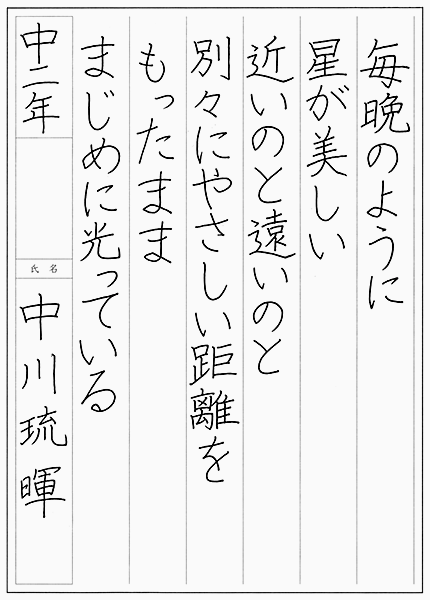 毎晩のように
星が美しい
近いのと遠いのと
別々にやさしい距離を
もったまま
まじめに光っている
中二年
氏名
中川琉暉